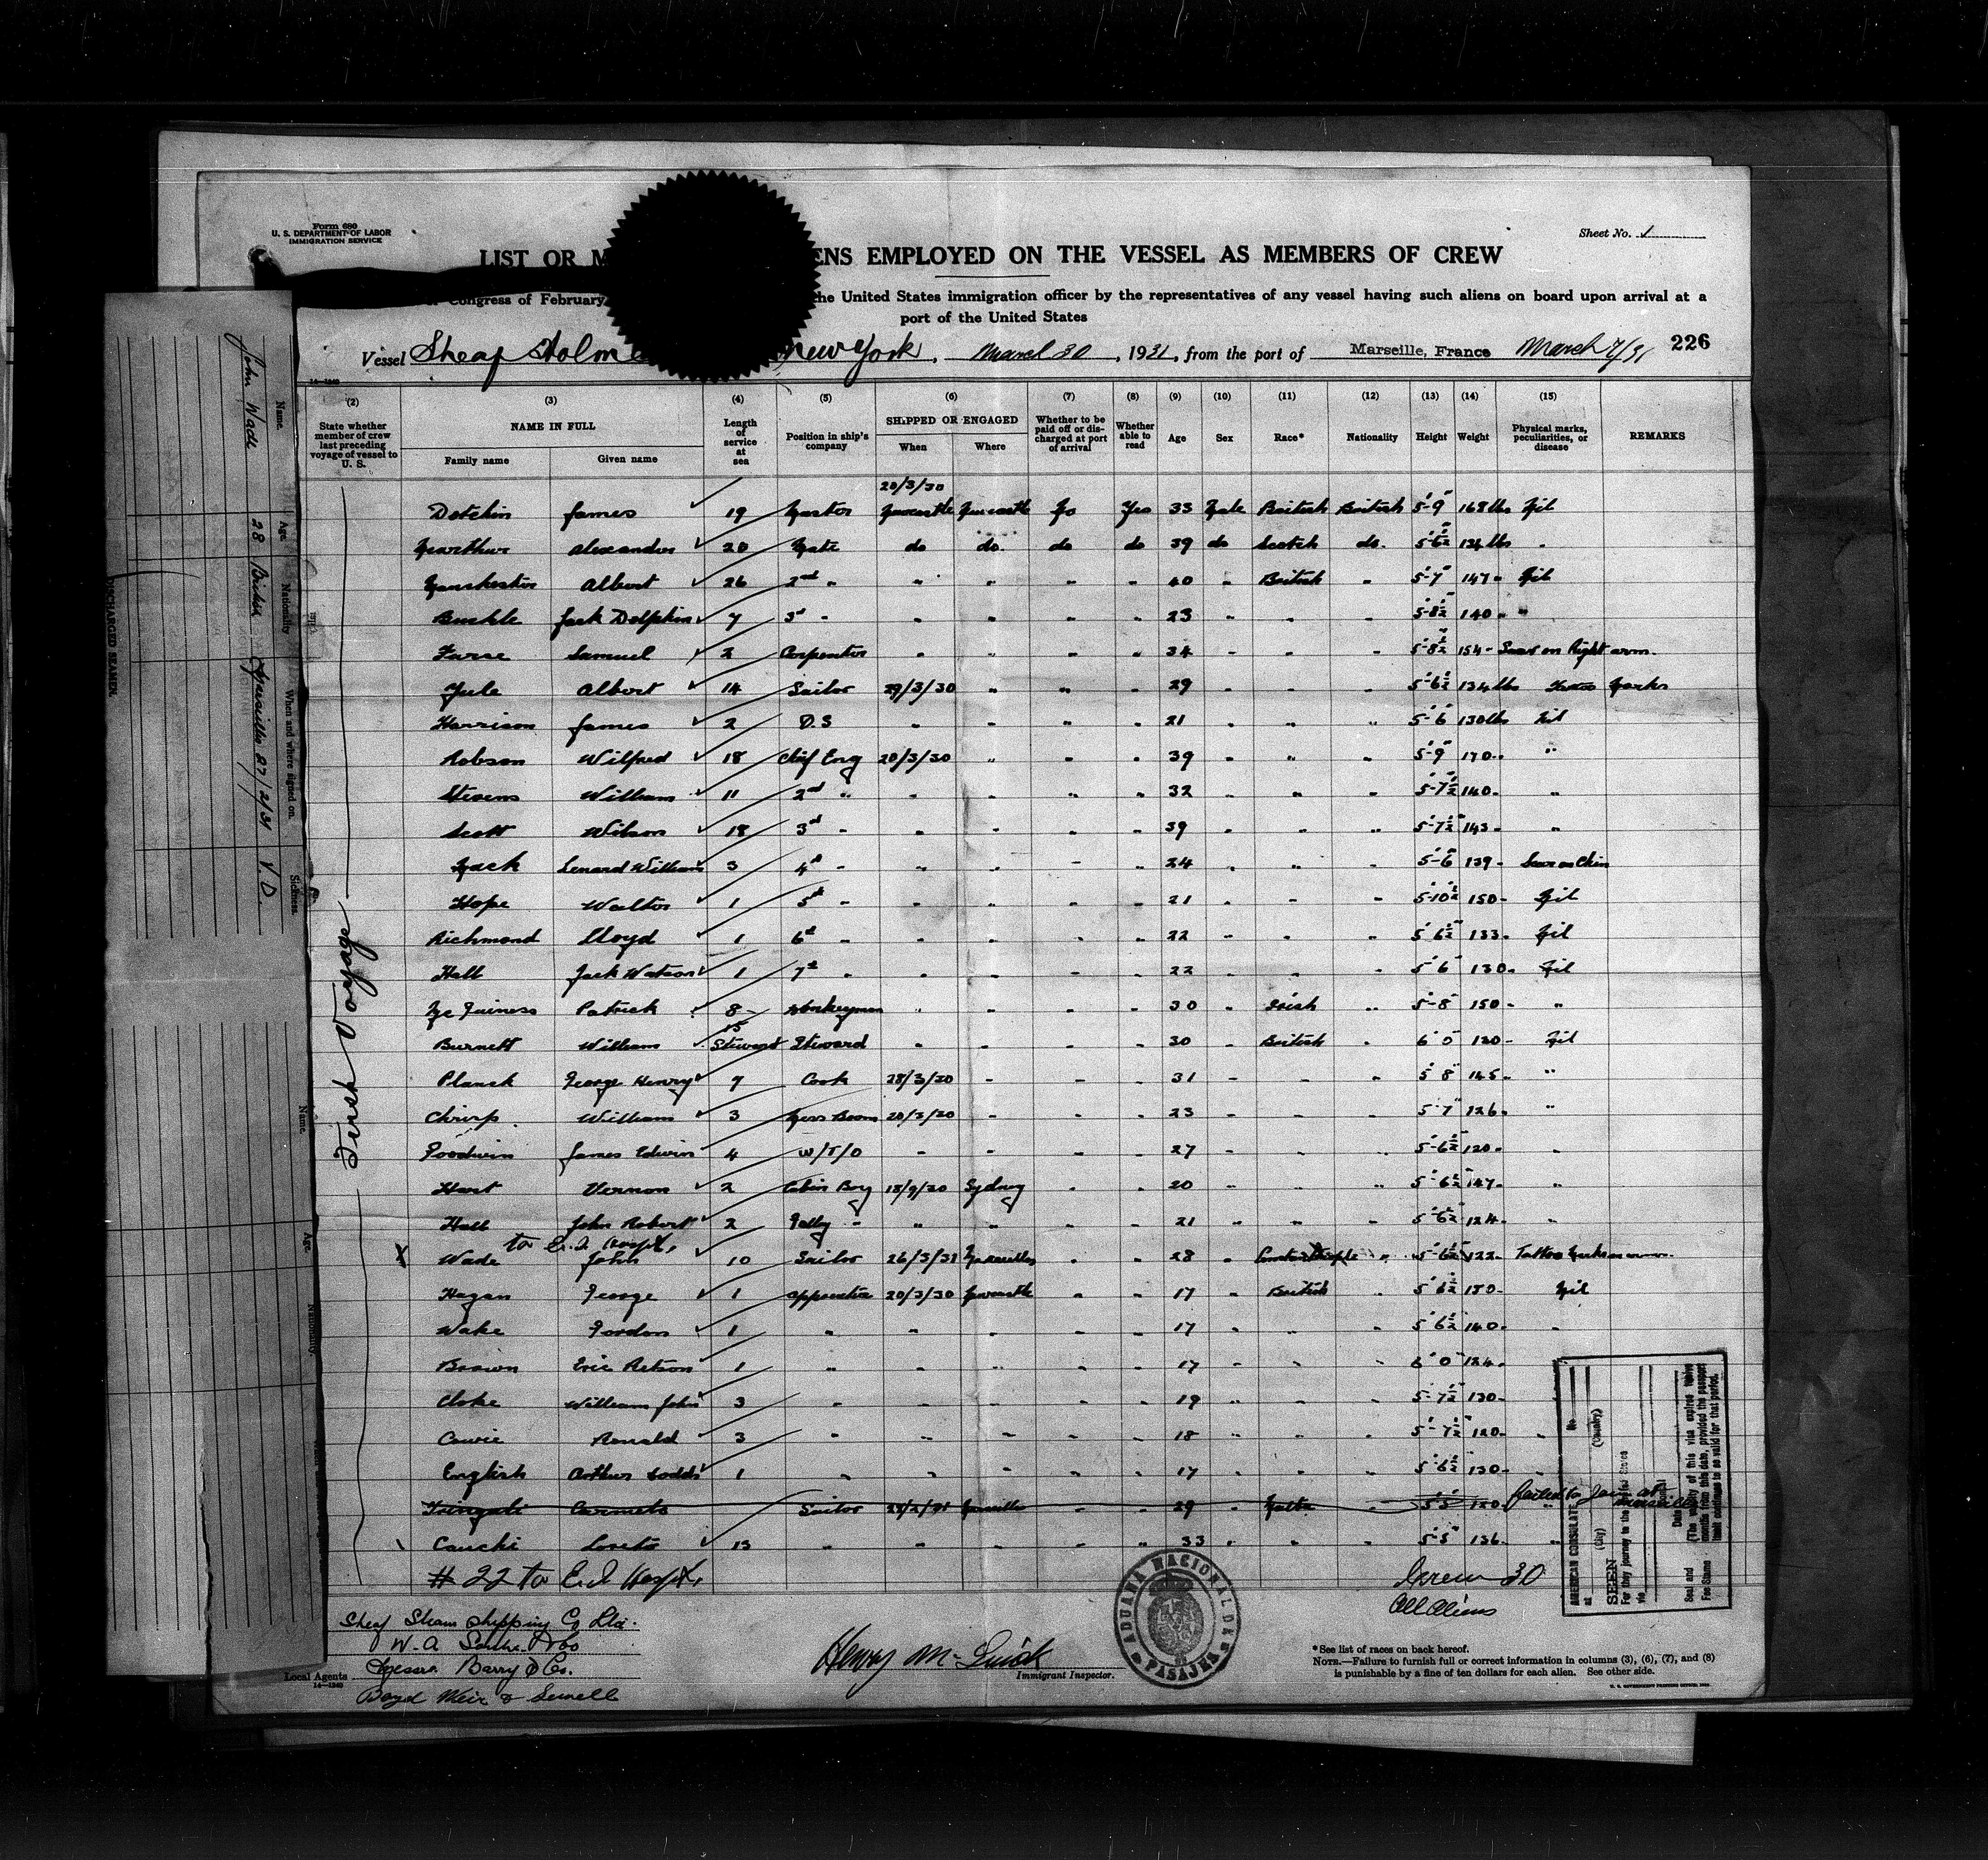 Form 680
U. S. DEPARTMENT OF LABOR
IMMIGRATION SERVICE
Sheet No. 1
LIST OR M ENS EMPLOYED ON THE VESSEL AS MEMBERS OF CREW
Congress of February the United States immigration officer by the representatives of any vessel having such aliens on board upon arrival at a
port of the United States
Vessel Sheaf Holme New York, March 30, 1931, from the port of Marseille, France March 7/31 226
(2) (3) (4) (5) (6) (7) (8) (9) (10) (11) (12) (13) (14) (15)
State whether member of crew last preceding voyage of vessel to U. S. NAME IN FULL Family name Given name Length of service at sea Position in ship's company SHIPPED OR ENGAGED When Where Whether to be paid off or discharged at port of arrival Whether able to read Age Sex Race* Nationality Height Weight Physical marks, peculiarities, or disease REMARKS
First Voyage
20/3/30
Detchin James 19 Master Newcastle Newcastle No Yes 33 Male British British 5-9 168 lbs Nil
Alexander 20 Mate do do. do do 39 do Scotch do. 5-6½ 134 lbs "
Manchester Albert 26 2nd " " " " " 40 " British " 5-7 147 " Nil
Buckle Jack Dolphin 7 3rd " " " " " 23 " " " 5-8½ 140 " "
Furse Samuel 2 Carpenter " " " " 34 " " " 5-8½ 154 " Scar on Right arm.
Yule Albert 14 Sailor 29/3/30 " " " 29 " " " 5-6½ 134 lbs Tattoo Marks
Harrison James 2 O.S " " " " 21 " " " 5-6 130 lbs Nil
Robson Wilfred 18 Chief Eng 20/3/30 " " " 39 " " " 5-9 170 " "
Stevens William 11 2nd " " " " " 32 " " " 5-7½ 140 " "
Scott Wilson 18 3rd " " " " " 39 " " " 5-7½ 143 " "
Mack Lenard William 3 4th " " " " " 24 " " " 5-6 139 " Scar on Chin
Hope Walter 1 5th " " " " 21 " " " 5-10½ 150 " Nil
Richmond Lloyd 1 6th " " " " " 22 " " " 5 6½ 133 " Nil
Hall Jack Watson 1 7th " " " " " 22 " " " 5 6 130 " Nil
Mc Guiness Patrick 8 Donkeyman " " " " 30 " Irish " 5-8 150 " "
Burnett William 15 Steward Steward " " " " 30 " British " 6 0 120 " Nil
Planck George Henry 7 Cook 28/3/30 " " " 31 " " " 5 8 145 " "
Chirsp William 3 Mess Room 20/3/30 " " " 23 " " " 5-7 126 " "
Goodwin James Edwin 4 W/T/O " " " " 27 " " " 5-6½ 120 " "
Hart Vernon 2 Cabin Boy 18/9/30 Sydney " " 20 " " " 5-6½ 147 " "
Hall John Robert 2 Galley " " " " " 21 " " " 5-6½ 124 " "
to E.I. Hospt,
X Wade John 10 Sailor 26/3/31 Marseilles " " 28 " " 5-6½ 122 " Tattoo Marks on arm.
Hagan George 1 Apprentice 20/3/30 Newcastle " " 17 " British " 5 6½ 150 " Nil
Wake Gordon 1 " " " " " 17 " " " 5 6½ 140 " "
Brown Eric Retson 1 " " " " " 17 " " " 6 0 124 "
Cloke William John 3 " " " " " 19 " " " 5-7½ 130 "
Cowie Ronald 3 " " " " " 18 " " " 5-7½ 120 " "
English Arthur Dodds 1 " " " " " 17 " " " 5 6½ 130 " "
Tringali Carmelo Sailor 28/2/31 Marseilles " " 29 " Malta " 5 5 120 Failed to Join at Marseilles
Cauchi Loreto 13 " " " " " 33 " " " 5-5 136 "
# 22 to E.I. Hospt,
Crew 30
All Aliens
Sheaf Steam Shipping Co Ltd.
W. A. Souter & Co
Local Agents Messrs. Barry & Co.
Boyd Weir & Sewell
14—1240
Henry M. Quick
Immigrant Inspector.
ADUANA NACIONAL DE PASAJES
*See list of races on back hereof.
NOTE.—Failure to furnish full or correct information in columns (3), (6), (7), and (8)
is punishable by a fine of ten dollars for each alien. See other side.
AMERICAN CONSULATE No.
at (City) (Country)
SEEN
For the journey to the United States
via
Date
(The validity of this visa expires twelve months from this date, provided the passport itself continues to be valid for that period.
Seal and
Fee Stamp
Name. Age. Nationality When and where signed on. Sickness.
John Wade 28 British Marseilles 27/2/31 V. D.
DISCHARGED SEAMEN.
Name. Age. Nationality.